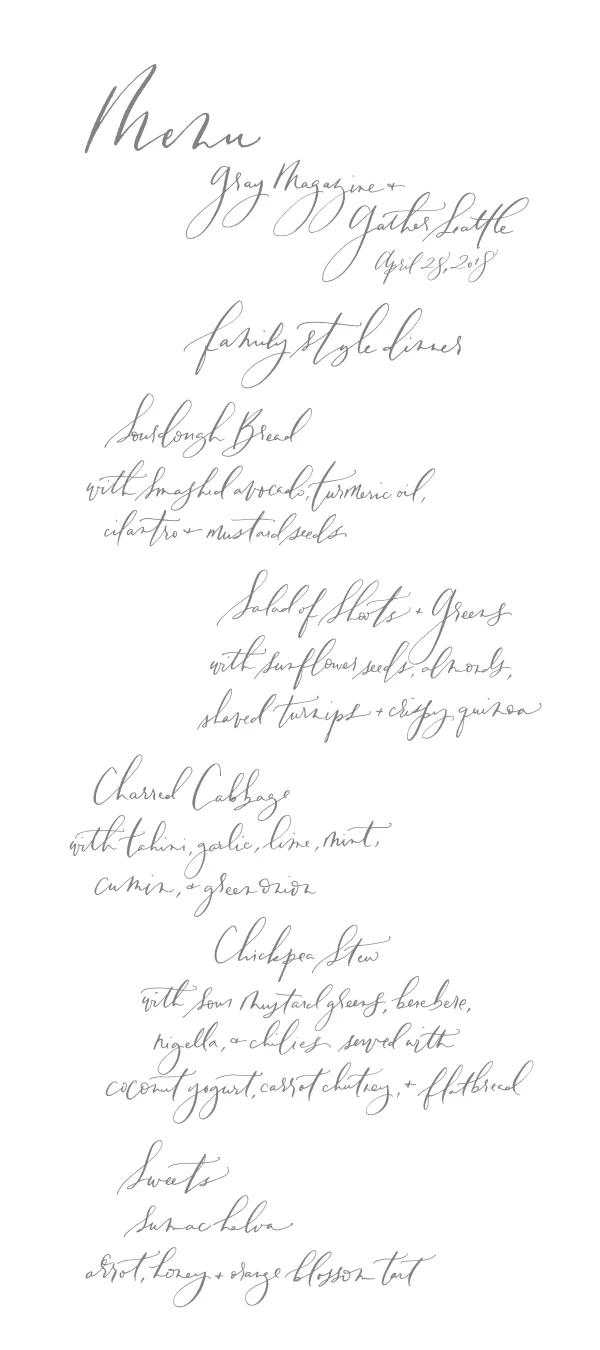 Menu
Gray Magazine +
Gather Seattle
April 28, 2018
family style dinner
Sourdough Bread
with smashed avocado, turmeric oil,
cilantro + mustard seeds
Salad of Shoots + Greens
with sunflower seeds, almonds,
shaved turnips + crispy quinoa
Charred Cabbage
with tahini, garlic, lime, mint,
cumin, + green onion
Chickpea Stew
with sour mustard greens, berebere,
nigella, + chilies served with
coconut yogurt, carrot chutney, + flatbread
Sweets
sumac halva
arrot, honey + orange blossom tart